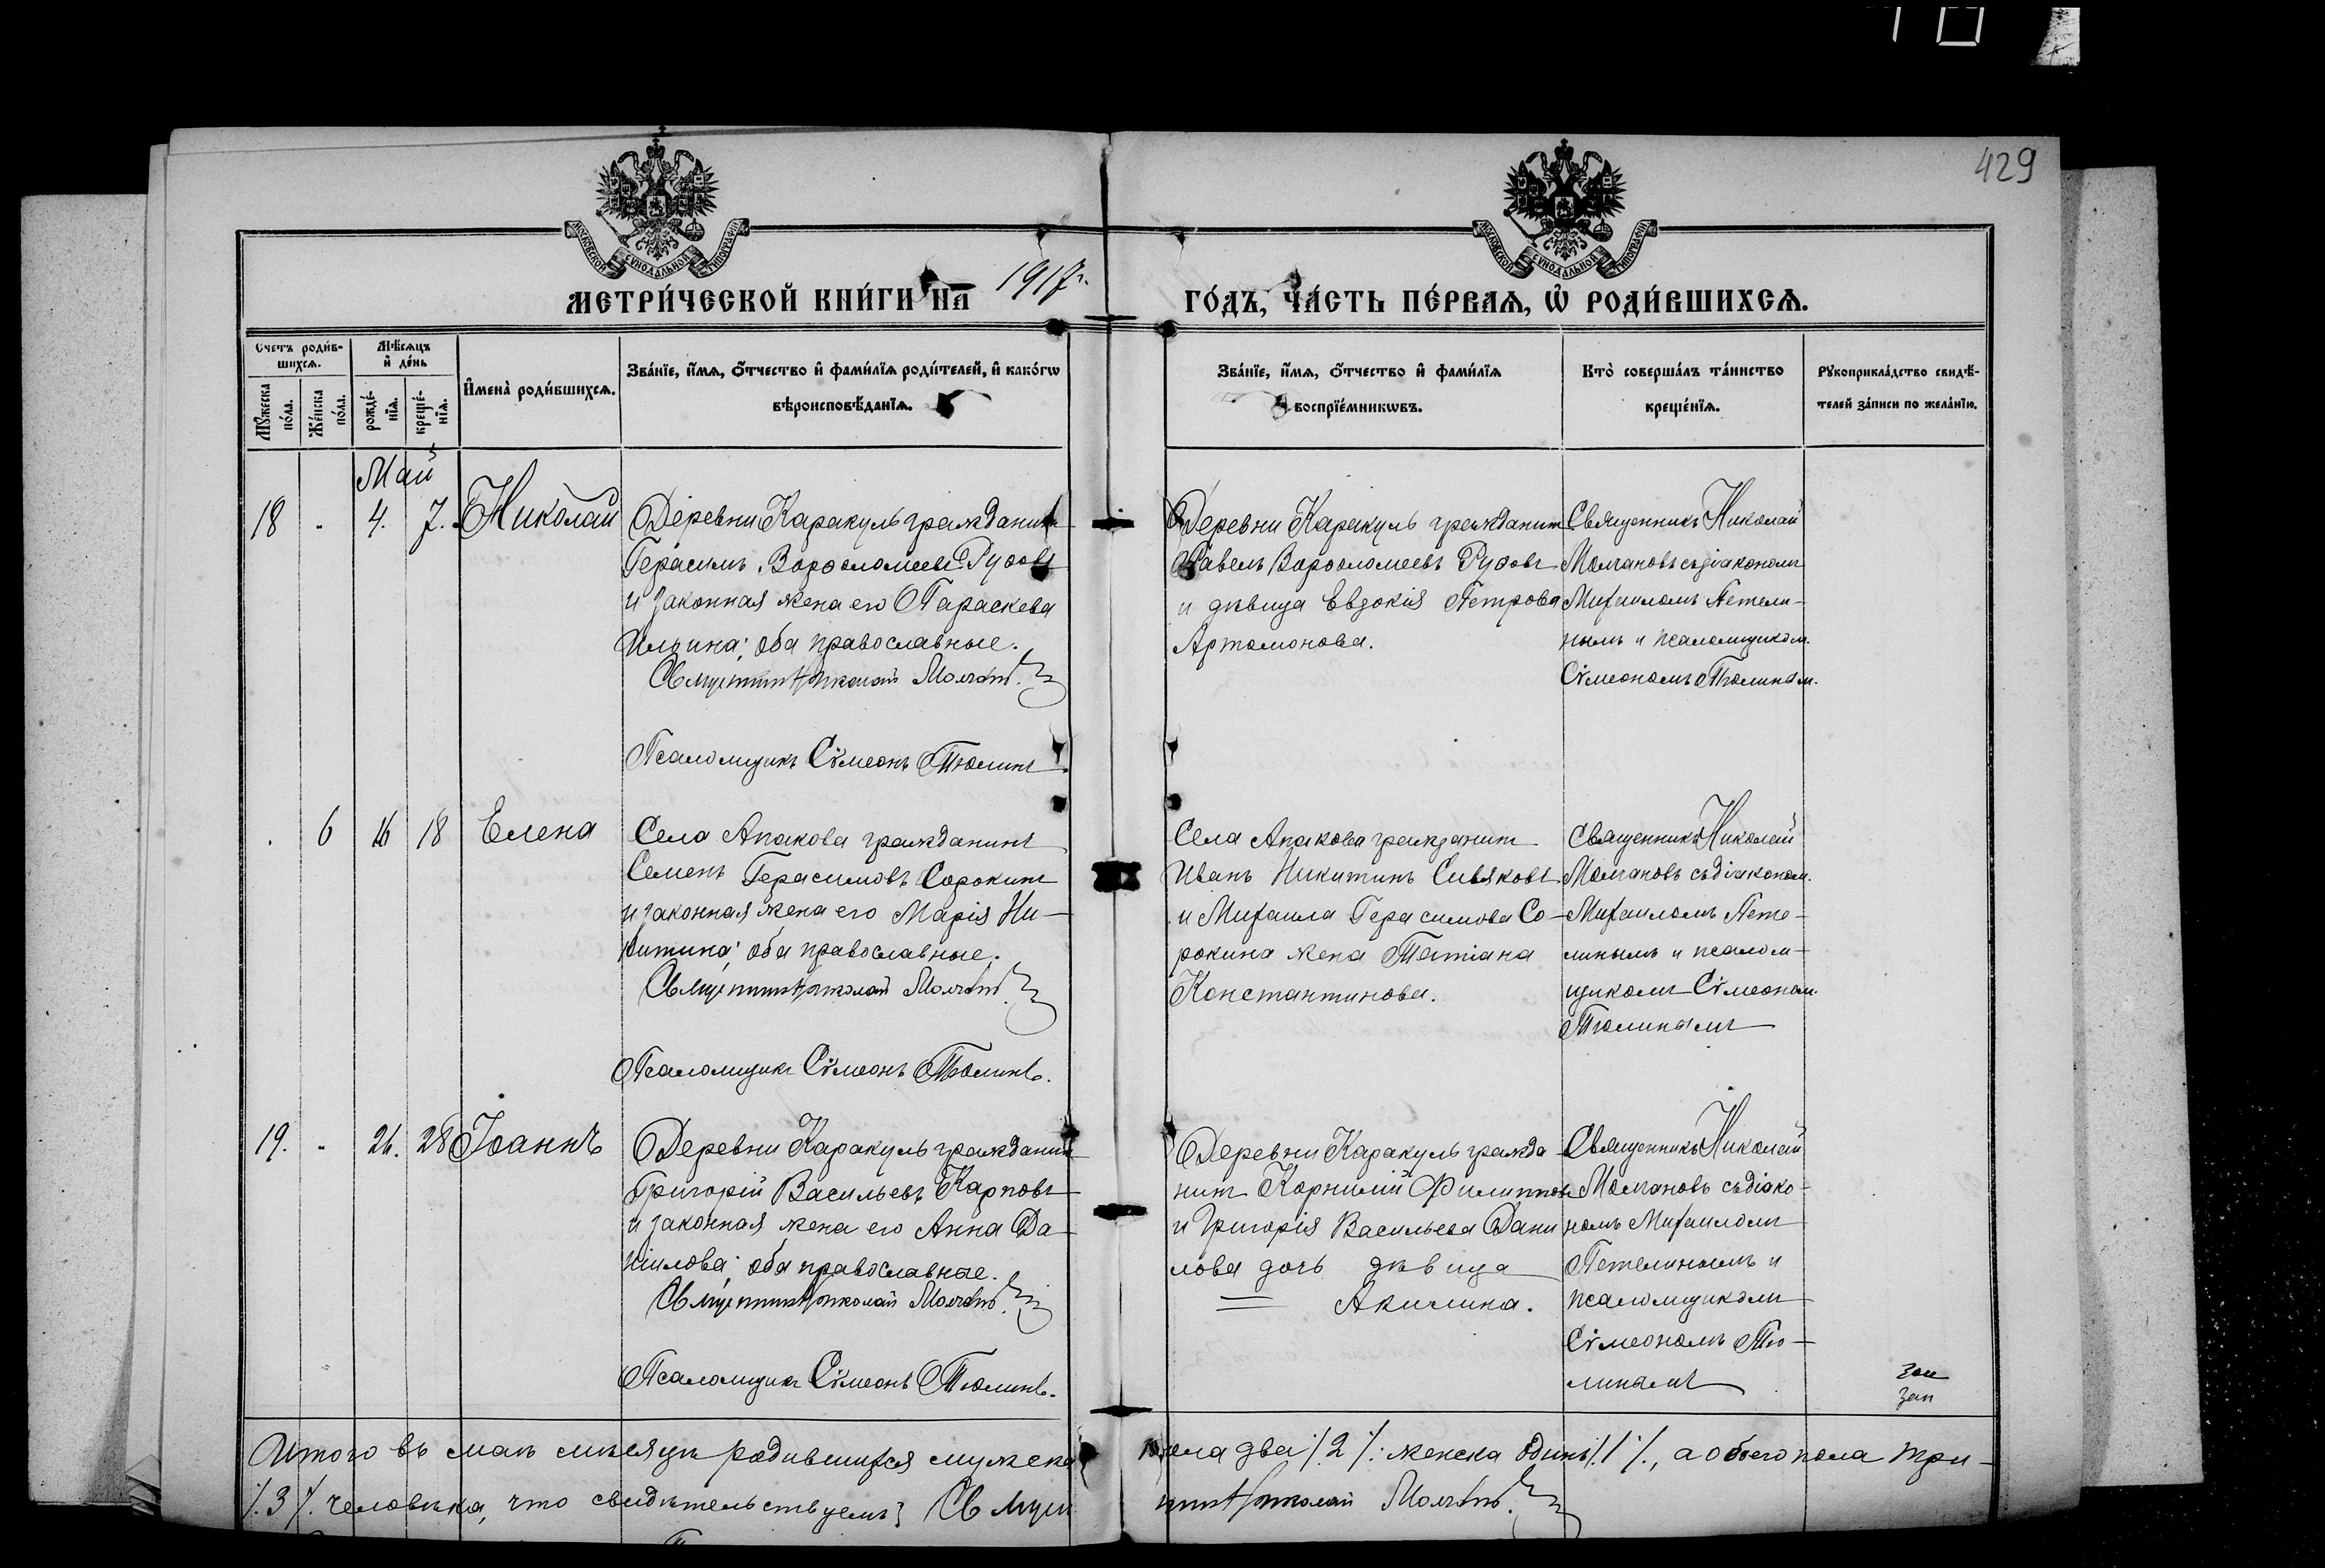 429
МОСКОВСКОЙ СѴНОДАЛЬНОЙ ТИПОГРАФІИ
МОСКОВСКОЙ СѴНОДАЛЬНОЙ ТИПОГРАФІИ
МЕТРИ́ЧЕСКОЙ КНИ́ГИ НА 1917 г. ГО́ДЪ, ЧА́СТЬ ПЕ́РВАѦ, Ѡ҆ РОДИ́ВШИХСѦ.
Счетъ роди́в-
шихсѧ.
Мꙋ́жеска
по́ла.
Же́нска
по́ла.
Мѣ́сѧцъ
и҆ де́нь
рожде́-
нїѧ.
креще́-
нїѧ.
И҆мена̀ роди́вшихсѧ.
Зва́нїе, и҆́мѧ, ѻ҆́тчество и҆ фами́лїѧ роди́телей, и҆ како́гѡ
вѣроисповѣ́данїѧ.
Зва́нїе, и҆́мѧ, ѻ҆́тчество и҆ фами́лїѧ
воспрїе́мникѡвъ.
Кто̀ соверша́лъ та́инство
креще́нїѧ.
Рꙋкоприкла́дство свидѣ́-
телей за́писи по жела́нїю.
Май
18 - 4. 7. Николай
Деревни Каракуль гражданинъ
Герасимъ Варѳоломеевъ Русовъ
и законная жена его Параскева
Ильина; оба православные.
Священникъ Николай Молчановъ.
Псаломщикъ Сѵмеонъ Тюлинъ.
Деревни Каракуль гражданинъ
Павелъ Варѳоломеевъ Русовъ
и дѣвица Евдокія Петрова
Артомонова.
Священникъ Николай
Молчановъ съ діакономъ
Михаиломъ Петели-
нымъ и псаломщиком.
Сѵмеономъ Тюлиным.
. 6 16 18 Елена
Села Апакова гражданинъ
Семенъ Герасимовъ Сорокинъ
и законная жена его Марія Ни-
китина; оба православные.
Священникъ Николай Молчановъ.
Псаломщикъ Сѵмеонъ Тюлинъ.
Села Апакова гражданинъ
Иванъ Никитинъ Сивяковъ
и Михаила Герасимова Со-
рокина жена Татіана
Константинова.
Священникъ Николай
Молчановъ съ діаконом.
Михаиломъ Пете-
линымъ и псалом-
щикомъ Сѵмеоном.
Тюлинымъ
19. - 26. 28 Іоаннъ
Деревни Каракуль гражданинъ
Григорій Васильевъ Карповъ
и законная жена его Анна Да-
ніилова; оба православные.
Священникъ Николай Молчановъ.
Псаломщикъ Сѵмеонъ Тюлинъ.
Деревни Каракуль гражда
нинъ Корнилій Филипповъ
и Григорія Васильева Дани
лова дочь дѣвица
Акилина.
Священникъ Николай
Молчановъ съ діако-
номъ Михаиломъ
Петелинымъ и
псаломщикомъ
Сѵмеономъ Тю-
линымъ
зап
Итого въ маѣ мѣсяцѣ родившихся мужска пола два /.2./ женска одинъ /.1./, а обоего пола три-
/.3./ человѣка, что свидѣтельствуемъ: Священникъ Николай Молчановъ.